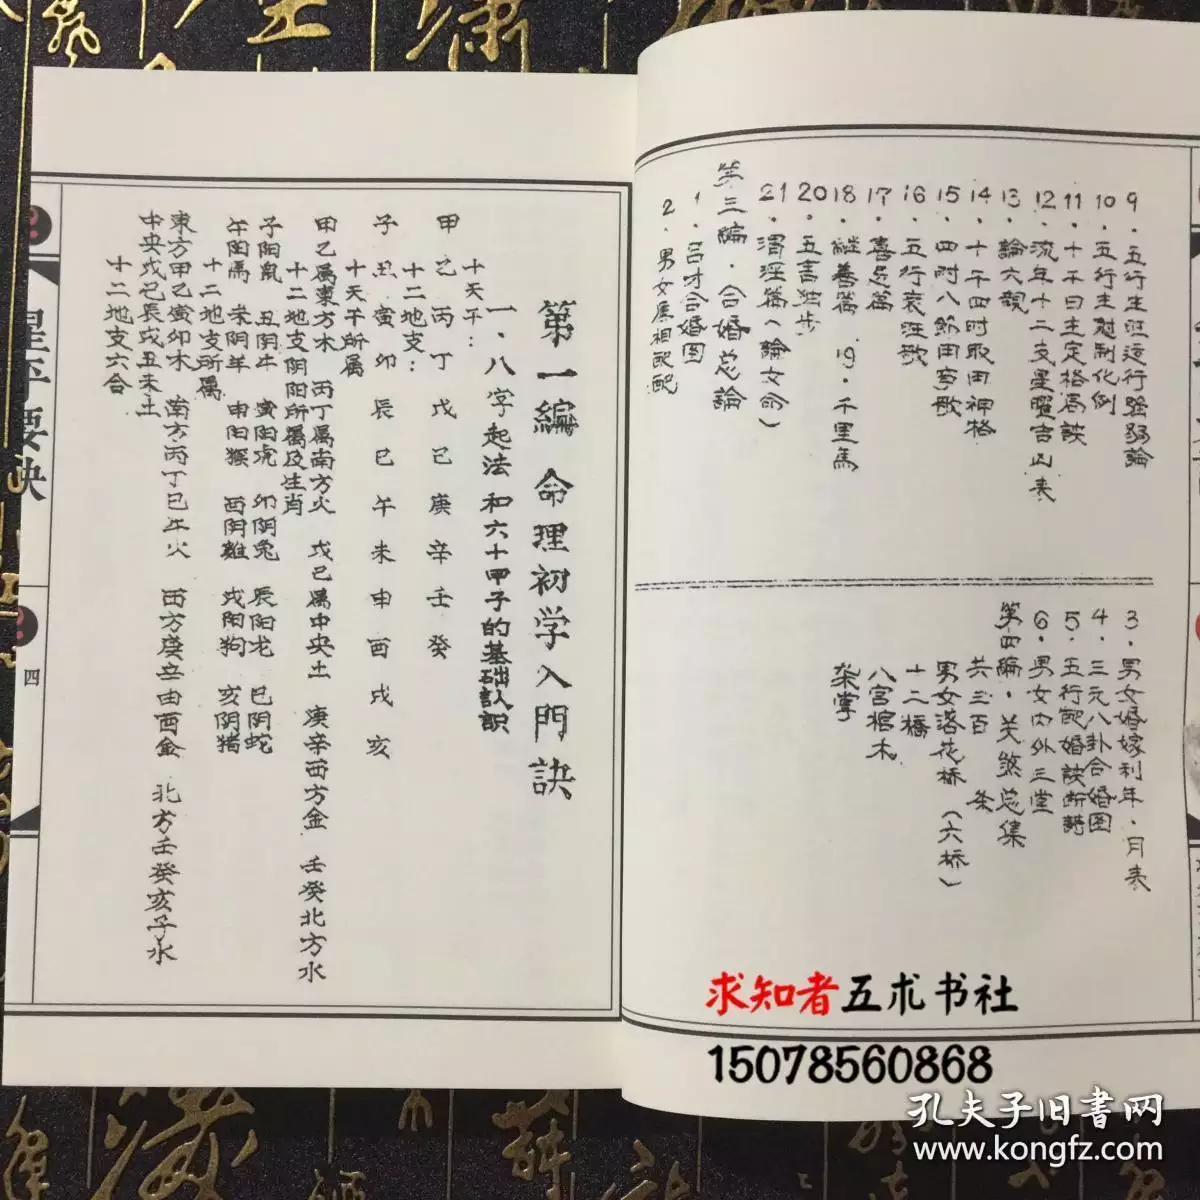 9.五行生旺运行强弱論
10.五行生尅制化例
11.十干日主定格局訣
12.流年十二支星曜吉凶表
13.論六親
14.十干四时取用神格
15.四时八節用事歌
16.五行衰旺歌
17.喜忌篇
18.继善篇 19.千里馬
20.五言独步
21.渭泾篇（論女命）
第三编.合婚总論
1.吕才合婚图
2.男女属相配配
3.男女婚嫁利年.月表
4.三元八卦合婚图
5.五行配婚訣断語
6.男女内外三堂
第四编.关煞总集
共三百 条
男女落花桥（六桥）
十二橋
八宫棺木
架掌
第一編 命理初学入門訣
一.八字起法和六十甲子的基础认识
十天干：
甲乙丙丁戊己庚辛壬癸
十二地支：
子丑寅卯辰巳午未申酉戌亥
十天干所属
甲乙属東方木 丙丁属南方火 戊己属中央土 庚辛西方金 壬癸北方水
十二地支阴阳所属及生肖
子阳鼠 丑阴牛 寅阳虎 卯阴兔 辰阳龙 巳阴蛇
午阳馬 未阴羊 申阳猴 酉阴雞 戌阳狗 亥阴猪
十二地支所属
東方甲乙寅卯木 南方丙丁巳午火 西方庚辛申酉金 北方壬癸亥子水
中央戊己辰戌丑未土
十二地支六合
星平要訣
四
求知者五术书社
15078560868
孔夫子旧書网
www.kongfz.com